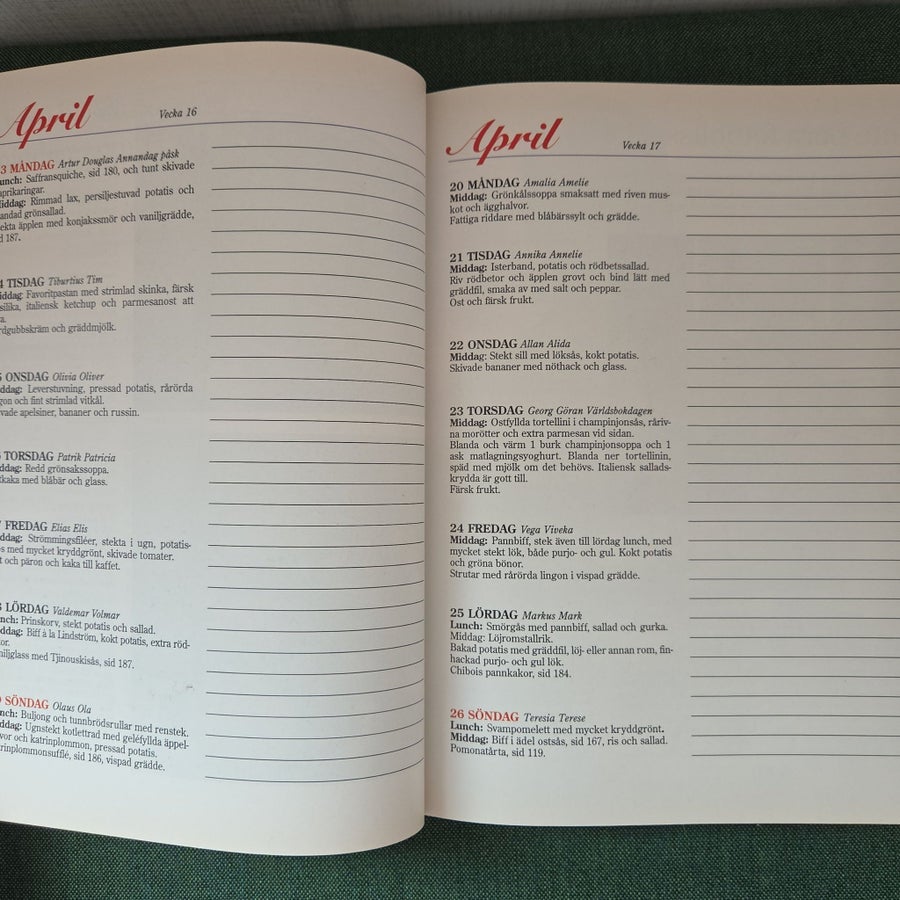 April
Vecka 16
3 MÅNDAG Artur Douglas Annandag påsk
unch: Saffransquiche, sid 180, och tunt skivade
aprikaringar.
iddag: Rimmad lax, persiljestuvad potatis och
andad grönsallad.
ekta äpplen med konjakssmör och vaniljgrädde,
d 187.
4 TISDAG Tiburtius Tim
iddag: Favoritpastan med strimlad skinka, färsk
silika, italiensk ketchup och parmesanost att
a.
rdgubbskräm och gräddmjölk.
ONSDAG Olivia Oliver
ddag: Leverstuvning, pressad potatis, rårörda
gon och fint strimlad vitkål.
vade apelsiner, bananer och russin.
TORSDAG Patrik Patricia
ddag: Redd grönsakssoppa.
tkaka med blåbär och glass.
7 FREDAG Elias Elis
ddag: Strömmingsfiléer, stekta i ugn, potatis-
s med mycket kryddgrönt, skivade tomater.
t och päron och kaka till kaffet.
LÖRDAG Valdemar Volmar
nch: Prinskorv, stekt potatis och sallad.
ddag: Biff à la Lindström, kokt potatis, extra röd-
or.
niljglass med Tjinouskisås, sid 187.
SÖNDAG Olaus Ola
nch: Buljong och tunnbrödsrullar med renstek.
ddag: Ugnstekt kotlettrad med geléfyllda äppel-
vor och katrinplommon, pressad potatis.
trinplommonsufflé, sid 186, vispad grädde.
April
Vecka 17
20 MÅNDAG Amalia Amelie
Middag: Grönkålssoppa smaksatt med riven mus-
kot och ägghalvor.
Fattiga riddare med blåbärssylt och grädde.
21 TISDAG Annika Annelie
Middag: Isterband, potatis och rödbetssallad.
Riv rödbetor och äpplen grovt och bind lätt med
gräddfil, smaka av med salt och peppar.
Ost och färsk frukt.
22 ONSDAG Allan Alida
Middag: Stekt sill med löksås, kokt potatis.
Skivade bananer med nöthack och glass.
23 TORSDAG Georg Göran Världsbokdagen
Middag: Ostfyllda tortellini i champinjonsås, råriv-
na morötter och extra parmesan vid sidan.
Blanda och värm 1 burk champinjonsoppa och 1
ask matlagningsyoghurt. Blanda ner tortellinin,
späd med mjölk om det behövs. Italiensk sallads-
krydda är gott till.
Färsk frukt.
24 FREDAG Vega Viveka
Middag: Pannbiff, stek även till lördag lunch, med
mycket stekt lök, både purjo- och gul. Kokt potatis
och gröna bönor.
Strutar med rårörda lingon i vispad grädde.
25 LÖRDAG Markus Mark
Lunch: Smörgås med pannbiff, sallad och gurka.
Middag: Löjromstallrik.
Bakad potatis med gräddfil, löj- eller annan rom, fin-
hackad purjo- och gul lök.
Chibois pannkakor, sid 184.
26 SÖNDAG Teresia Terese
Lunch: Svampomelett med mycket kryddgrönt.
Middag: Biff i ädel ostsås, sid 167, ris och sallad.
Pomonatårta, sid 119.